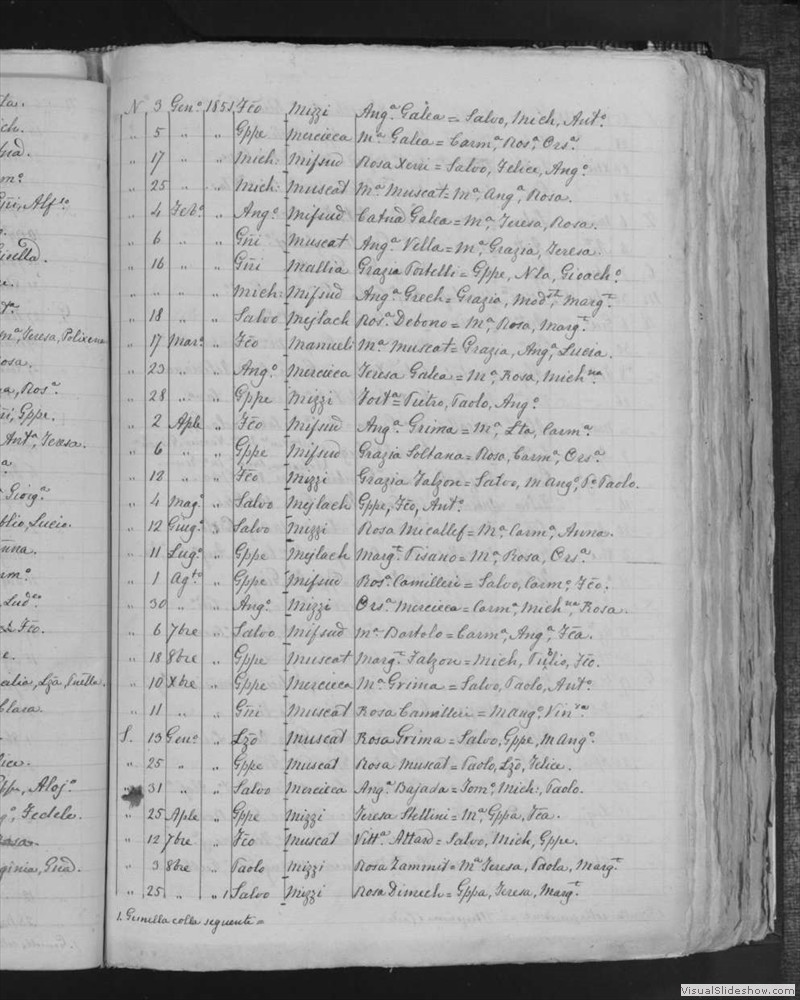 ta.
ich.
Alfso.
m.a Teresa, Polixena
osa.
a, Ros.a
Gppe.
Ant.a, Teresa.
a
Giorg.a
blio, Lucio.
e.
Clara.
Aloj.o
Fedele.
N 3 Gen.o 1851 Fco Mizzi Ang.a Galea = Salvo, Mich, Ant.o
" 5 " " Gppe Mercieca M.a Galea = Carm.a, Ros.a, Ors.a
" 17 " " Mich: Mifsud Rosa Xerri = Salvo, Felice, Ang.o
" 25 " " Mich: Muscat M.a Muscat = M.a, Ang.a, Rosa.
" 4 Feb.o " Ang.o Mifsud Catna Galea = M.a, Teresa, Rosa.
" 6 " " Gñi Muscat Ang.a Vella = M.a, Grazia, Teresa.
" 16 " " Gñi Mallia Grazia Portelli = Gppe, Nla, Gioach.o
" " " Mich: Mifsud Ang.a Grech = Grazia, Mod.st, Marg.t
" 18 " " Salvo Mejlach Ros.a Debono = M.a, Rosa, Marg.t
" 17 Mar.o " Fco Manueli M.a Muscat = Grazia, Ang.a, Lucia.
" 23 " " Ang.o Mercieca Teresa Galea = M.a, Rosa, Mich.na
" 28 " " Gppe Mizzi Fort.a = Pietro, Paolo, Ang.o
" 2 Aple " Fco Mifsud Ang.a Grima = M.a, Lta, Carm.a
" 6 " " Gppe Mifsud Grazia Soltana = Rosa, Carm.a, Ors.a
" 12 " " Fco Mizzi Grazia Falzon = Salvo, M Ang.o, P.o Paolo.
" 4 Mag.o " Salvo Mejlach Gppe, Fco, Ant.o
" 12 Giug.o " Salvo Mizzi Rosa Micallef = M.a, Carm.a, Anna.
" 11 Lug.o " Gppe Mejlach Marg.t Pisano = M.a, Rosa, Ors.a
" 1 Ag.to " Gppe Mifsud Ros.a Camilleri = Salvo, Carm.o, Fco.
" 30 " " Ang.o Mizzi Ors.a Mercieca = Carm.a, Mich.na, Rosa.
" 6 7bre " Salvo Mifsud M.a Bartolo = Carm.a, Ang.a, Fca.
" 18 8bre " Gppe Muscat Marg.t Falzon = Mich, Publio, Fco.
" 10 Xbre " Gppe Mercieca M.a Grima = Salvo, Paolo, Ant.o
" 11 " " Gñi Muscat Rosa Camilleri = M Ang.o, Vin.za
S. 13 Gen.o " Lzo Muscat Rosa Grima = Salvo, Gppe, M Ang.o
" 25 " " Gppe Muscat Rosa Muscat = Paolo, Lzo, Felice.
" 31 " " Salvo Mercieca Ang.a Bajada = Tom.o, Mich:, Paolo.
" 25 Aple " Gppe Mizzi Teresa Stellini = M.a, Gppa, Fca.
" 12 7bre " Fco Muscat Vitt.a Attard = Salvo, Mich, Gppe.
" 3 8bre " Paolo Mizzi Rosa Zammit = M.a Teresa, Paola, Marg.t
" 25 " " 1 Salvo Mizzi Rosa Dimech = Gppa, Teresa, Marg.t
1. Gemella colla seguente =
VisualSlideshow.com